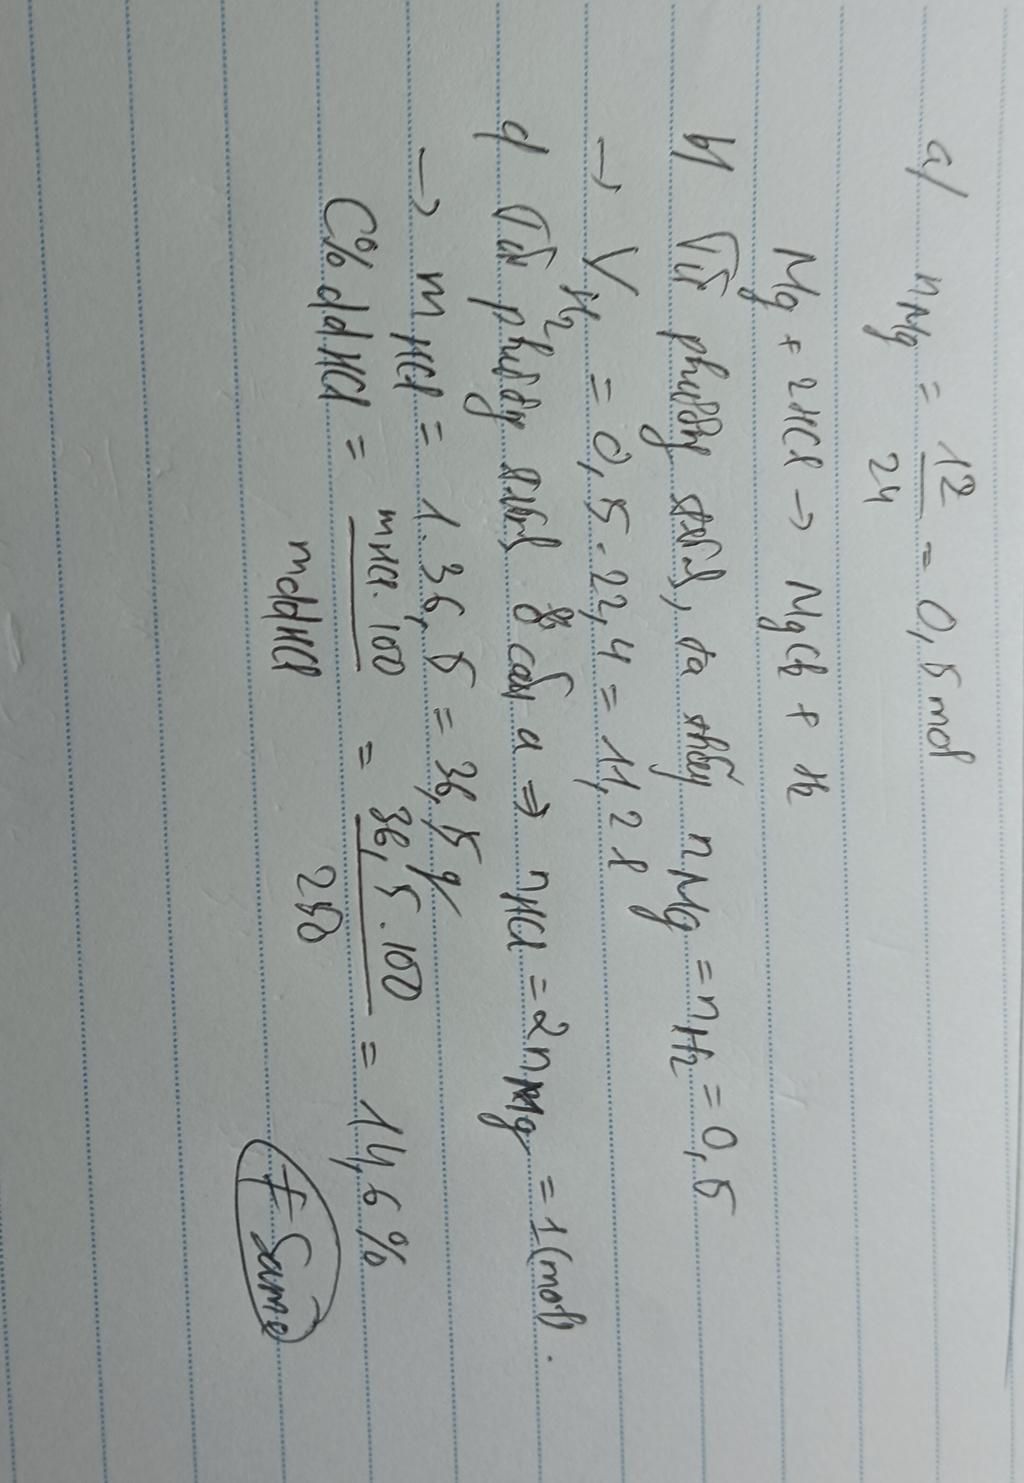 a/ nMg = 12/24 = 0,5 mol
Mg + 2HCl → MgCl2 + H2
b/ Từ phương trình, ta thấy nMg = nH2 = 0,5
→ VH2 = 0,5.22,4 = 11,2 l
c/ Từ phương trình ở câu a ⇒ nHCl = 2nMg = 1 (mol).
→ mHCl = 1.36,5 = 36,5 g
C% ddHCl = mHCl.100/mddHCl = 36,5.100/250 = 14,6%